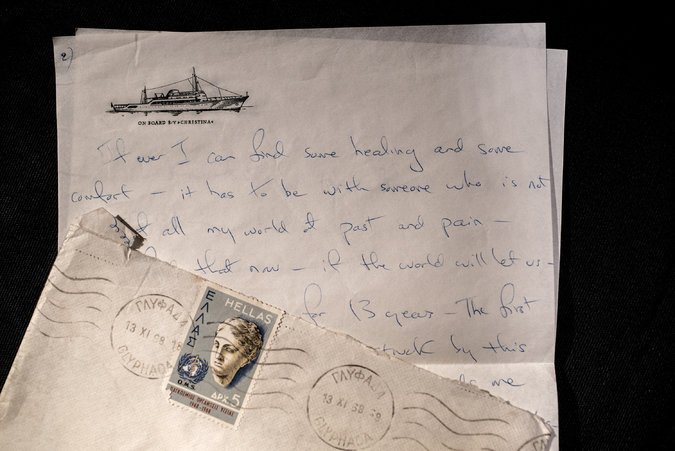 2)
ON BOARD S·Y·"CHRISTINA"
If ever I can find some healing and some
comfort — it has to be with someone who is not
part of all my world of past and pain —
that now — if the world will let us —
for 13 years — The first
struck by this
me
ΓΛΥΦΑΔΑ
13 XI 68 18
GLYPHADA
ΕΛΛΑΣ
HELLAS
O.M.S.
ΠΑΓΚΟΣΜΙΟΣ ΟΡΓΑΝΩΣΙΣ ΥΓΕΙΑΣ
1948-1968
ΔΡΧ. 5
ΓΛΥΦΑΔΑ
13 XI 68 18
GLYPHADA